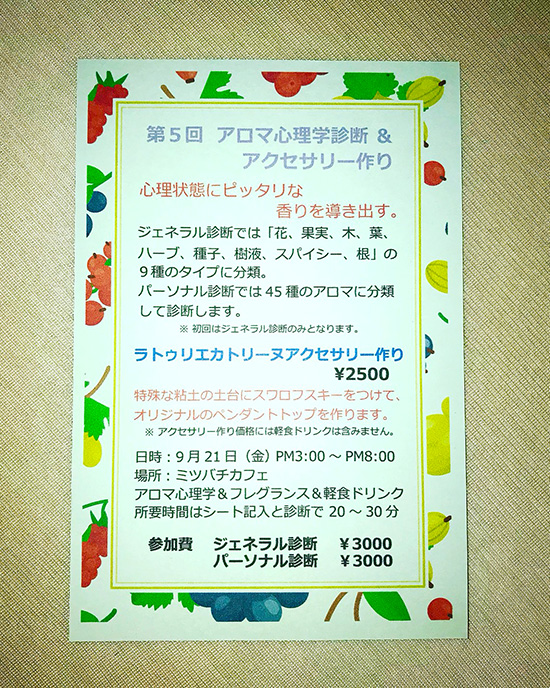 第5回 アロマ心理学診断 &
アクセサリー作り
心理状態にピッタリな
香りを導き出す。
ジェネラル診断では「花、果実、木、葉、
ハーブ、種子、樹液、スパイシー、根」の
9種のタイプに分類。
パーソナル診断では45種のアロマに分類
して診断します。
※ 初回はジェネラル診断のみとなります。
ラトゥリエカトリーヌアクセサリー作り
¥2500
特殊な粘土の土台にスワロフスキーをつけて、
オリジナルのペンダントトップを作ります。
※ アクセサリー作り価格には軽食ドリンクは含みません。
日時：9月21日（金）PM3:00～PM8:00
場所：ミツバチカフェ
アロマ心理学＆フレグランス＆軽食ドリンク
所要時間はシート記入と診断で 20～30分
参加費 ジェネラル診断 ￥3000
パーソナル診断 ￥3000